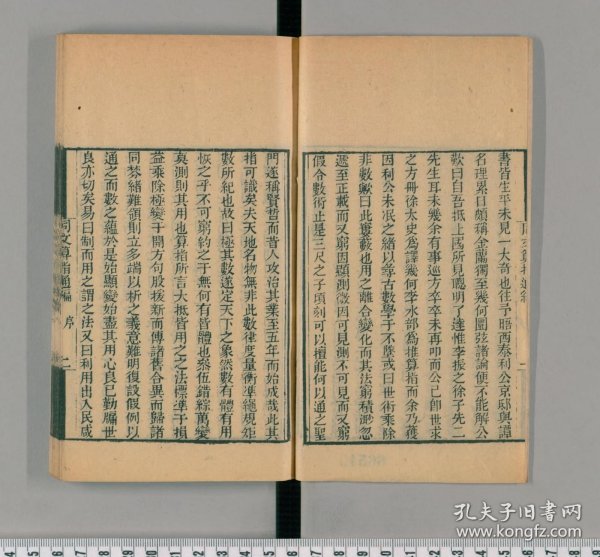 書皆生平未見一大奇也往予晤西泰利公京邸與譚
名理累日頗稱金蘭獨至幾何圜弦諸論便不能解公
歎曰自吾抵上國所見聰明了達惟李振之徐子先二
先生耳未幾余有事巡方卒卒未再叩而公已卽世求
之方冊徐太史爲譯幾何李水部爲推算指而余乃獲
因利公未泯之緒以尋古數學于不墜或曰世術乘除
非數歟曰此蘧廬也用之離合變化而其法窮積渺忽
遞至正載而又窮因顯測微因可見測不可見而又窮
假令數術止是三尺之子頃刻可以擅能何以通之聖
門逐稱賢哲而昔人攻治其業至五年而始成哉此其
指可識矣夫天地名物無非此數律度量衡準繩規矩
數所紀也故曰極其數遂定天下之象然數有體有用
恢之乎不可窮約之于無何有皆體也叅伍錯綜萬變
奠測則其用也算指所言大抵皆用之之法標準于損
益乘除極變于開方句股援新而傳諸舊合異而歸諸
同棼緒難領則立多端以析之義意難明復設假例以
通之而數之蘊於是始顯變始盡其用心良已勤編世
良亦切矣易曰制而用之謂之法又曰利用出入民咸
同文算指通編
序
二
孔夫子旧书网
www.kongfz.com